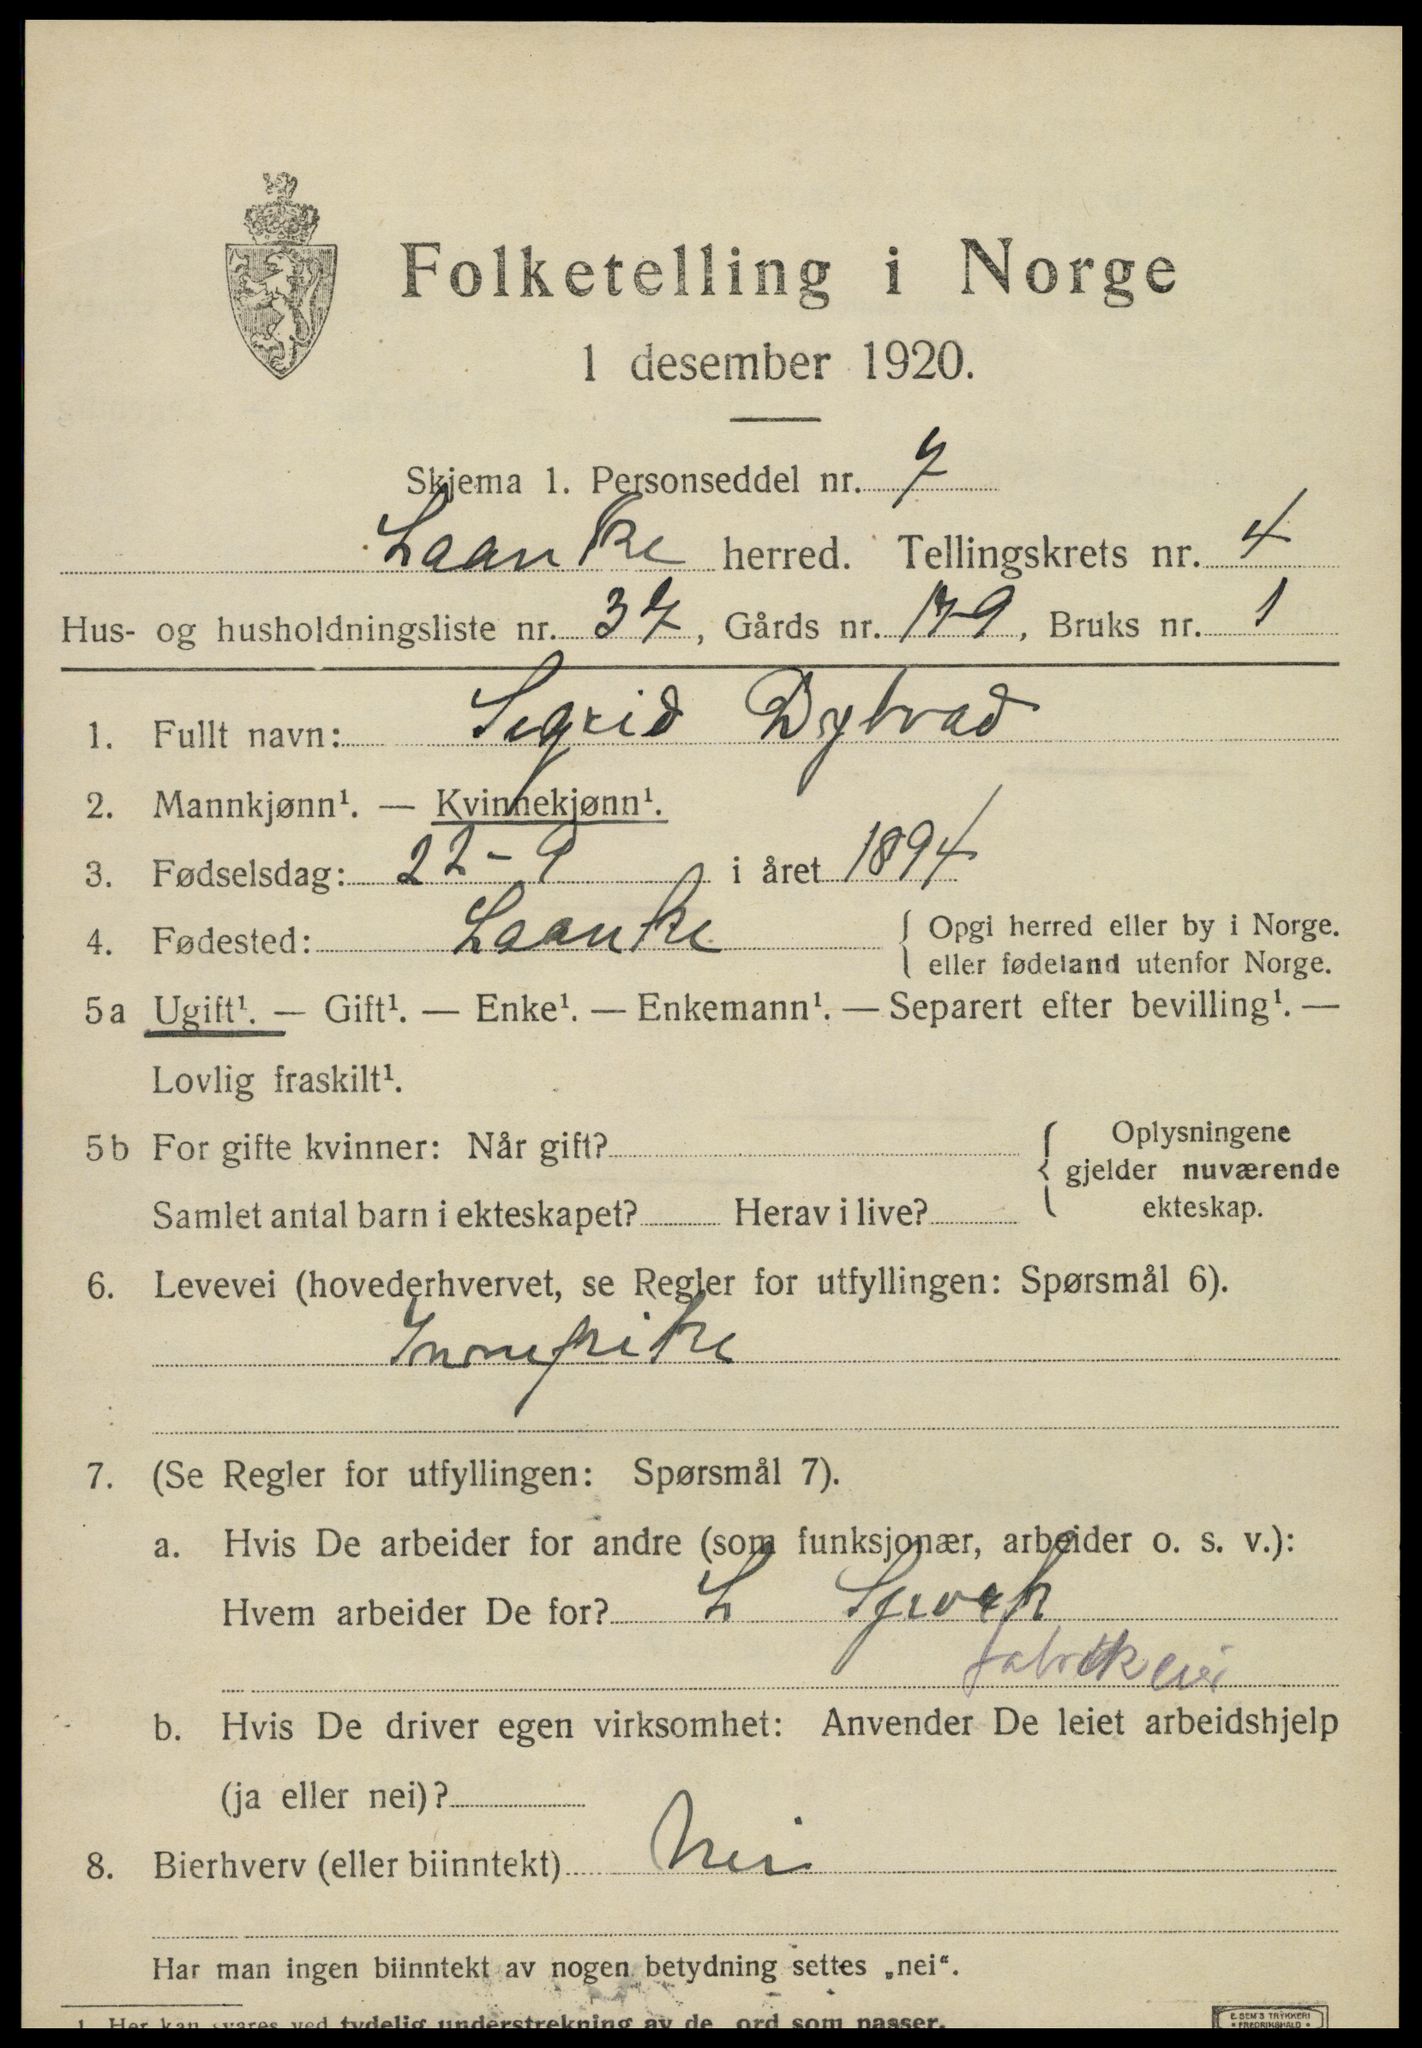 Folketelling i Norge
1 desember 1920.
Skjema 1. Personseddel nr. 7
Laanke herred. Tellingskrets nr. 4
Hus- og husholdningsliste nr. 37, Gårds nr. 179, Bruks nr. 1
1. Fullt navn: Sigrid Dybvad
2. Mannkjønn¹. — Kvinnekjønn¹.
3. Fødselsdag: 22-9 i året 1894
4. Fødested: Laanke { Opgi herred eller by i Norge.
eller fødeland utenfor Norge.
5a Ugift¹. — Gift¹. — Enke¹. — Enkemann¹. — Separert efter bevilling¹. —
Lovlig fraskilt¹.
5b For gifte kvinner: Når gift? { Oplysningene
gjelder nuværende
Samlet antal barn i ekteskapet? Herav i live? ekteskap.
6. Levevei (hovederhvervet, se Regler for utfyllingen: Spørsmål 6).
Innepike
7. (Se Regler for utfyllingen: Spørsmål 7).
a. Hvis De arbeider for andre (som funksjonær, arbeider o. s. v.):
Hvem arbeider De for? L
fabrikkeier
b. Hvis De driver egen virksomhet: Anvender De leiet arbeidshjelp
(ja eller nei)?
8. Bierhverv (eller biinntekt) Nei
Har man ingen biinntekt av nogen betydning settes „nei“.
1 Her kan svares ved tydelig understrekning av de ord som passer.
E. SEM'S TRYKKERI
FREDRIKSHALD